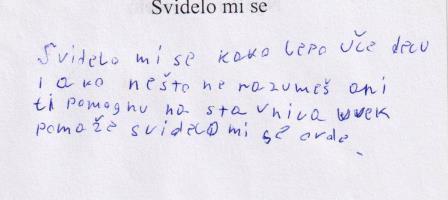 Svidelo mi se
Svidelo mi se kako lepo uče decu
i ako nešto ne razumeš oni
ti pomognu na stavnica uvek
pomaže svidelo mi se ovde.